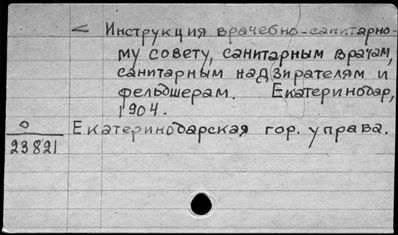 < Инструкция врачебно-санитарно-
му совету, санитарным врачам,
санитарным надзирателям и
фельдшерам. Екатеринодар,
1904.
0
23821
Екатеринодарская гор. управа.